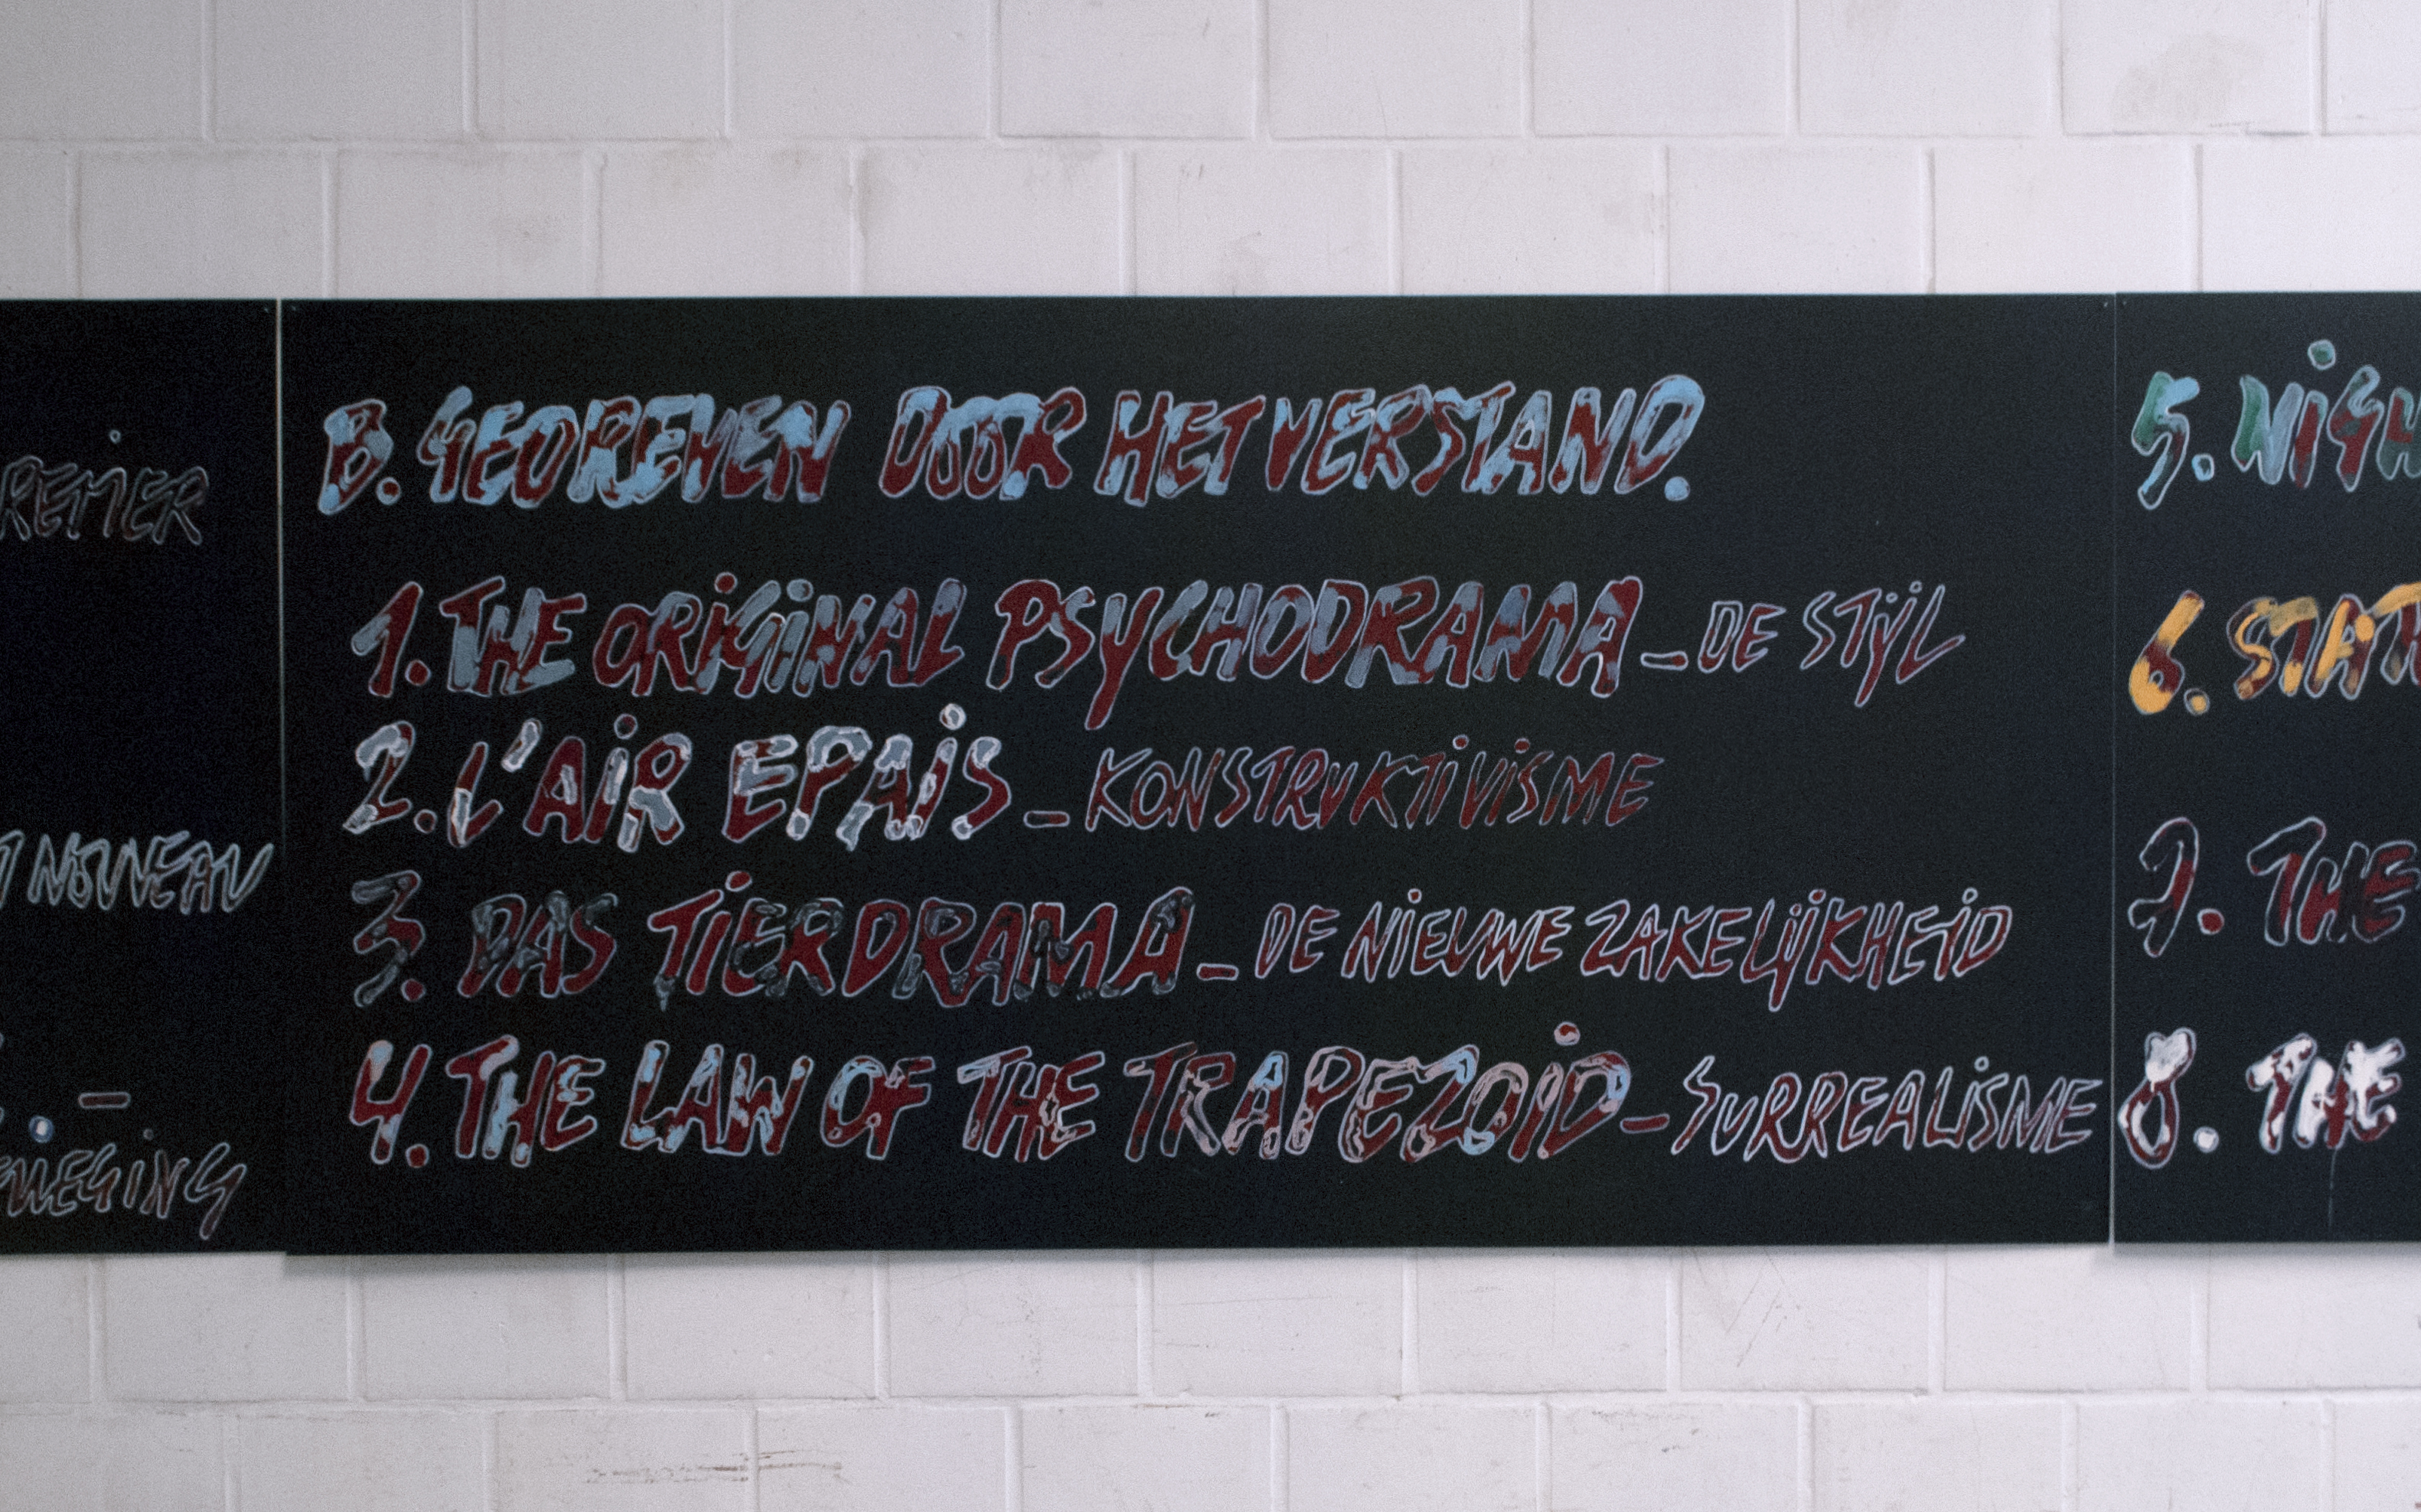 B. GEDREVEN DOOR HET VERSTAND.
1. THE ORIGINAL PSYCHODRAMA – DE STIJL
2. L'AIR EPAIS – KONSTRUKTIVISME
3. DAS TIERDRAMA – DE NIEUWE ZAKELIJKHEID
4. THE LAW OF THE TRAPEZOID – SURREALISME
NOUVEAU
5. NIGH
6. STAT
7. THE
8. THE